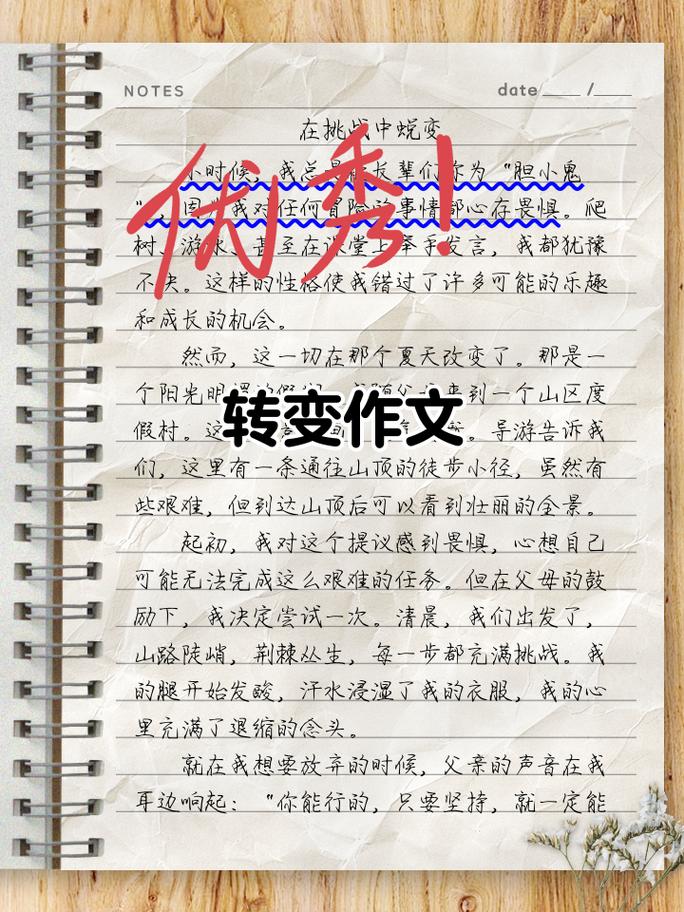 NOTES
date ____ /____
在挑战中蜕变
小时候，我总是被长辈们称为“胆小鬼
”，因为我对任何冒险的事情都心存畏惧。爬
树、游泳、甚至在课堂上举手发言，我都犹豫
不决。这样的性格使我错过了许多可能的乐趣
和成长的机会。
优秀！
然而，这一切在那个夏天改变了。那是一
个阳光明 来到一个山区度
转变作文
假村。这 。导游告诉我
们，这里有一条通往山顶的徒步小径，虽然有
些艰难，但到达山顶后可以看到壮丽的全景。
起初，我对这个提议感到畏惧，心想自己
可能无法完成这么艰难的任务。但在父母的鼓
励下，我决定尝试一次。清晨，我们出发了，
山路陡峭，荆棘丛生，每一步都充满挑战。我
的腿开始发酸，汗水浸湿了我的衣服，我的心
里充满了退缩的念头。
就在我想要放弃的时候，父亲的声音在我
耳边响起：“你能行的，只要坚持，就一定能